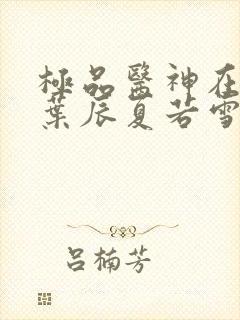 極品醫神在
葉辰夏若雪
呂楠芳